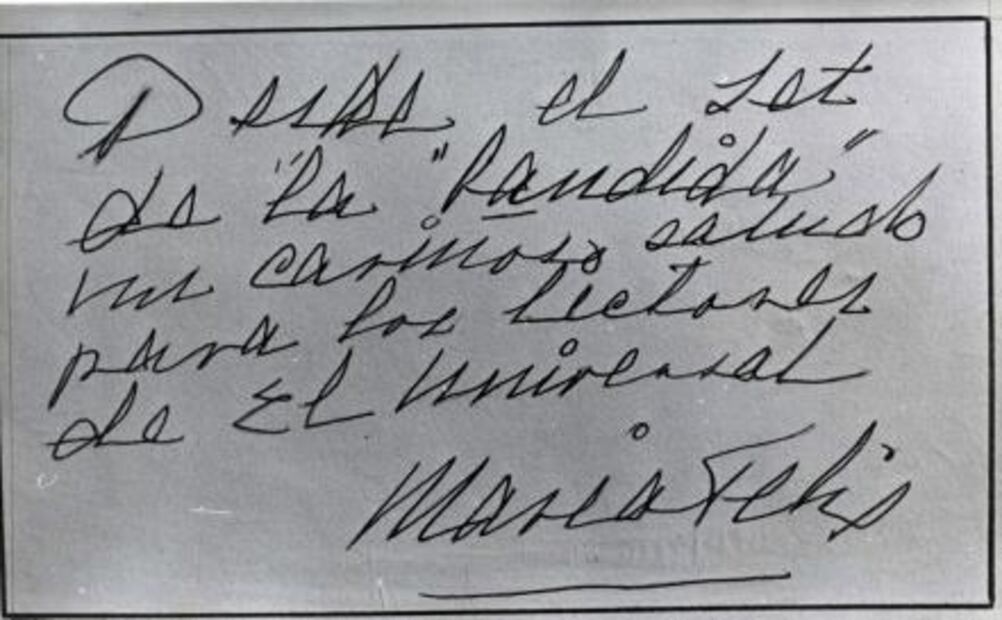 Desde el set
de "la "bandida"
un cariñoso saludo
para los lectores
de El Universal
Maria Felix